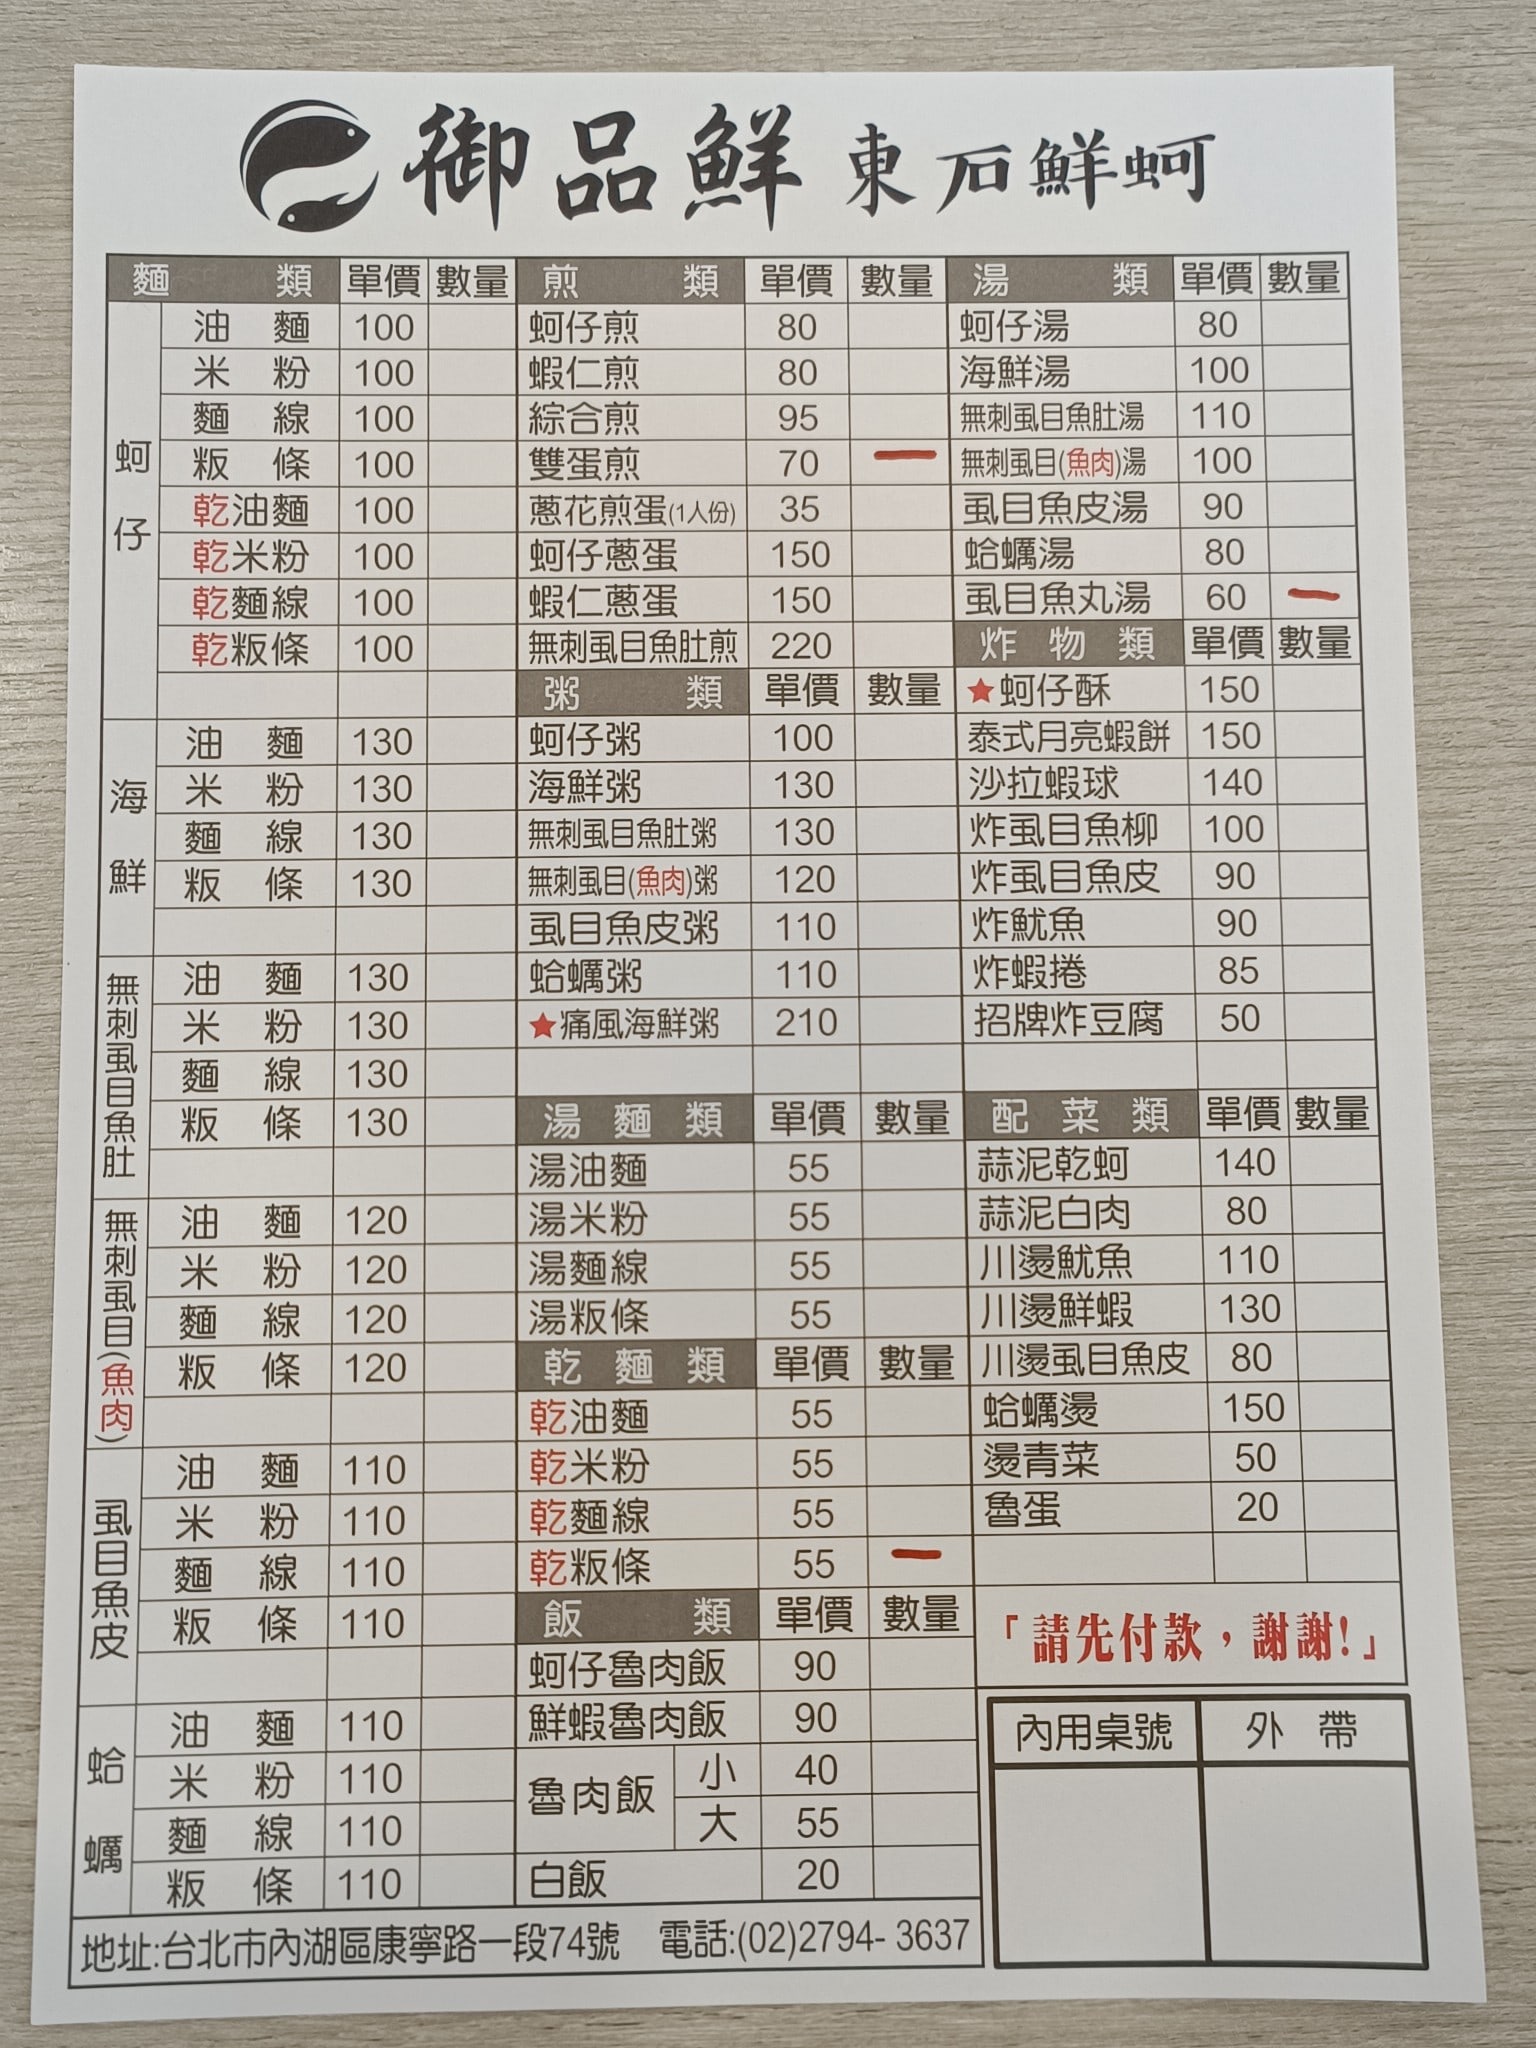 御品鮮 東石鮮蚵
麵類 單價 數量
蚵仔
油麵 100
米粉 100
麵線 100
粄條 100
乾油麵 100
乾米粉 100
乾麵線 100
乾粄條 100
海鮮
油麵 130
米粉 130
麵線 130
粄條 130
無刺虱目魚肚
油麵 130
米粉 130
麵線 130
粄條 130
無刺虱目(魚肉)
油麵 120
米粉 120
麵線 120
粄條 120
虱目魚皮
油麵 110
米粉 110
麵線 110
粄條 110
蛤蠣
油麵 110
米粉 110
麵線 110
粄條 110
煎類 單價 數量
蚵仔煎 80
蝦仁煎 80
綜合煎 95
雙蛋煎 70 一
蔥花煎蛋(1人份) 35
蚵仔蔥蛋 150
蝦仁蔥蛋 150
無刺虱目魚肚煎 220
粥類 單價 數量
蚵仔粥 100
海鮮粥 130
無刺虱目魚肚粥 130
無刺虱目(魚肉)粥 120
虱目魚皮粥 110
蛤蠣粥 110
★痛風海鮮粥 210
湯麵類 單價 數量
湯油麵 55
湯米粉 55
湯麵線 55
湯粄條 55
乾麵類 單價 數量
乾油麵 55
乾米粉 55
乾麵線 55
乾粄條 55 一
飯類 單價 數量
蚵仔魯肉飯 90
鮮蝦魯肉飯 90
魯肉飯 小 40
大 55
白飯 20
湯類 單價 數量
蚵仔湯 80
海鮮湯 100
無刺虱目魚肚湯 110
無刺虱目(魚肉)湯 100
虱目魚皮湯 90
蛤蠣湯 80
虱目魚丸湯 60 一
炸物類 單價 數量
★蚵仔酥 150
泰式月亮蝦餅 150
沙拉蝦球 140
炸虱目魚柳 100
炸虱目魚皮 90
炸魷魚 90
炸蝦捲 85
招牌炸豆腐 50
配菜類 單價 數量
蒜泥乾蚵 140
蒜泥白肉 80
川燙魷魚 110
川燙鮮蝦 130
川燙虱目魚皮 80
蛤蠣燙 150
燙青菜 50
魯蛋 20
「請先付款，謝謝!」
內用桌號 外帶
地址:台北市內湖區康寧路一段74號 電話:(02)2794-3637